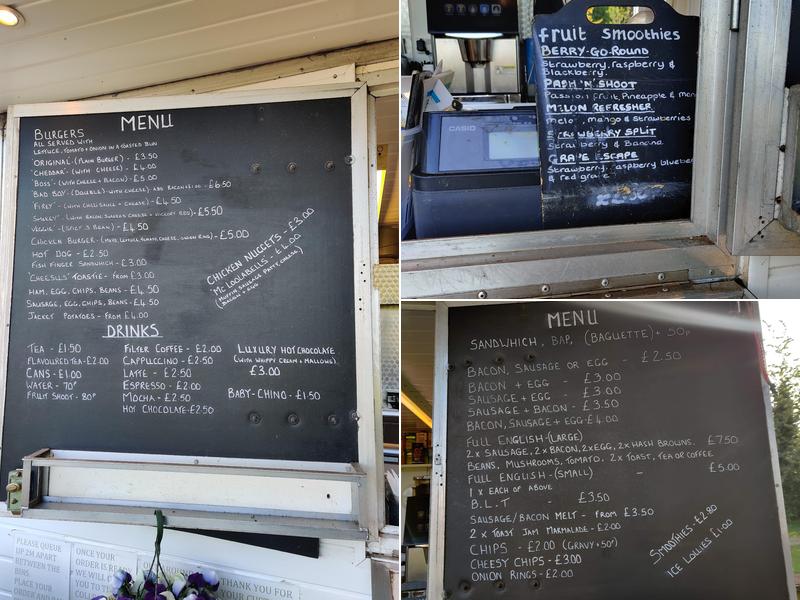 MENU
BURGERS
ALL SERVED WITH
LETTUCE, TOMATO + ONION IN A TOASTED BUN
'ORIGINAL'- (PLAIN BURGER) - £3.50
'CHEDDAR'- (WITH CHEESE) - £4.00
'BOSS'- (WITH CHEESE + BACON) - £5.00
'BAD BOY'- (DOUBLE)- WITH CHEESE) ADD BACON £1.00 - £6.50
'FIREY' - (WITH CHILLI SAUCE + CHEESE) - £4.50
(WITH BACON, SMOKED CHEESE + HICKORY BBQ)- £5.50
VEGGIE - (SPICY 3 BEAN) - £4.50
CHICKEN BURGER - (MAYO, LETTUCE, TOMATO, CHEESE, ONION RING) - £5.00
HOT DOG - £2.50
FISH FINGER SANDWICH - £3.00
'CHEESLLS' TOASTIE - FROM £3.00
HAM, EGG, CHIPS, BEANS - £4.50
SAUSAGE, EGG, CHIPS, BEANS - £4.50
JACKET POTATOES - FROM £4.00
CHICKEN NUGGETS - £3.00
'MCLOOLABELLS - £4.00
(MUFFIN, SAUSAGE PATTY, CHEESE,)
(BACON + EGG
DRINKS
TEA - £1.50
FLAVOURED TEA - £2.00
CANS - £1.00
WATER - 70P
FRUIT SHOOT - 80P
FILTER COFFEE - £2.00
CAPPUCCINO - £2.50
LATTE - £2.50
ESPRESSO - £2.00
MOCHA - £2.50
HOT CHOCOLATE - £2.50
LUXURY HOT CHOCOLATE
(WITH WHIPPY CREAM + MALLOWS)
£3.00
BABY-CHINO - £1.50
PLEASE QUEUE
UP 2M APART
BETWEEN THE
BINS.
PLACE YOUR
ONCE YOUR
ORDER IS
WE WILL
YOU TO
THANK YOU FOR
CASIO
fruit smoothies
BERRY-GO-ROUND
Strawberry, raspberry &
Blackberry.
PASH 'N' SHOOT
Passion fruit, Pineapple & man
MELON REFRESHER
melon, mango & strawberries
STRAWBERRY SPLIT
Strawberry & Banana
GRAPE ESCAPE
Strawberry, raspberry blueber
& red grape
MENU
SANDWHICH, BAP, (BAGUETTE) + 50P
BACON, SAUSAGE OR EGG - £2.50
BACON + EGG - £3.00
SAUSAGE + EGG - £3.00
SAUSAGE + BACON - £3.50
BACON, SAUSAGE + EGG - £4.00
FULL ENGLISH - (LARGE)
2 x SAUSAGE, 2 x BACON, 2 x EGG, 2 x HASH BROWNS. £7.50
BEANS, MUSHROOMS, TOMATO. 2 x TOAST, TEA OR COFFEE
FULL ENGLISH - (SMALL) - £5.00
1 x EACH OF ABOVE
B.L.T - £3.50
SAUSAGE/BACON MELT - FROM £3.50
2 x TOAST JAM MARMALADE - £2.00
CHIPS - £2.00 (GRAVY + 50P)
CHEESY CHIPS - £3.00
ONION RINGS - £2.00
SMOOTHIES - £2.80
ICE LOLLIES £1.00